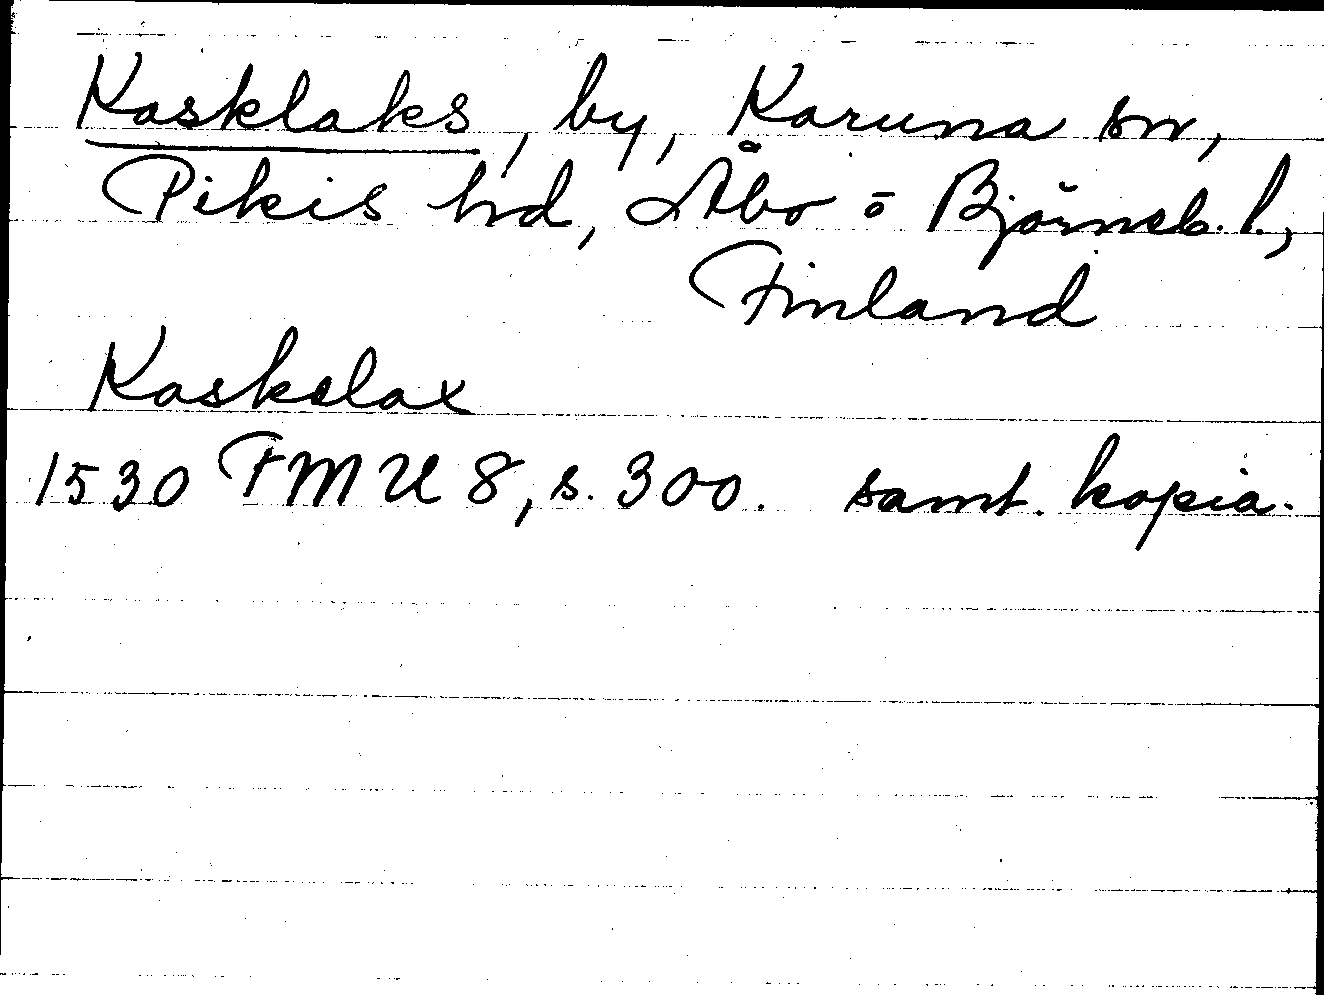 Kasklaks, by, Karuna sn,
Pikis hd, Åbo o Björneb. l.,
Finland
Kaskelax
1530 FMU 8, s. 300. samt. kopia.